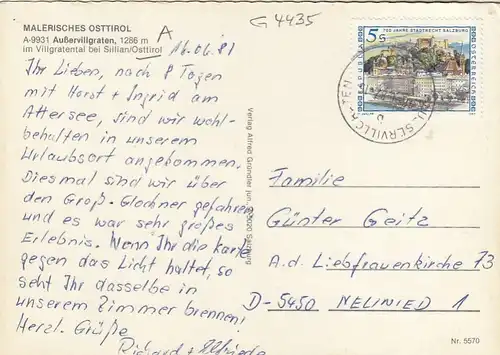 MALERISCHES OSTTIROL
A-9931 Außervillgraten, 1286 m
im Villgratental bei Sillian/Osttirol
A
G 4435
16.06.81
Ihr Lieben, nach 8 Tagen
mit Horst + Ingrid am
Attersee, sind wir wohl-
behalten in unserem
Urlaubsort angekommen.
Diesmal sind wir über
den Groß-Glockner gefahren
und es war sehr großes
Erlebnis. Wenn Ihr die Karte
gegen das Licht haltet, so
seht Ihr dasselbe in
unserem Zimmer brennen!
Herzl. Grüße
Richard + Elfriede
Verlag Alfred Gründler jun., A-5020 Salzburg
5 S
700 JAHRE STADTRECHT SALZBURG
REPUBLIK
ÖSTERREICH
Familie
Günter Geitz
A.d. Liebfrauenkirche 73
D-5450 NEUWIED 1
Nr. 5570